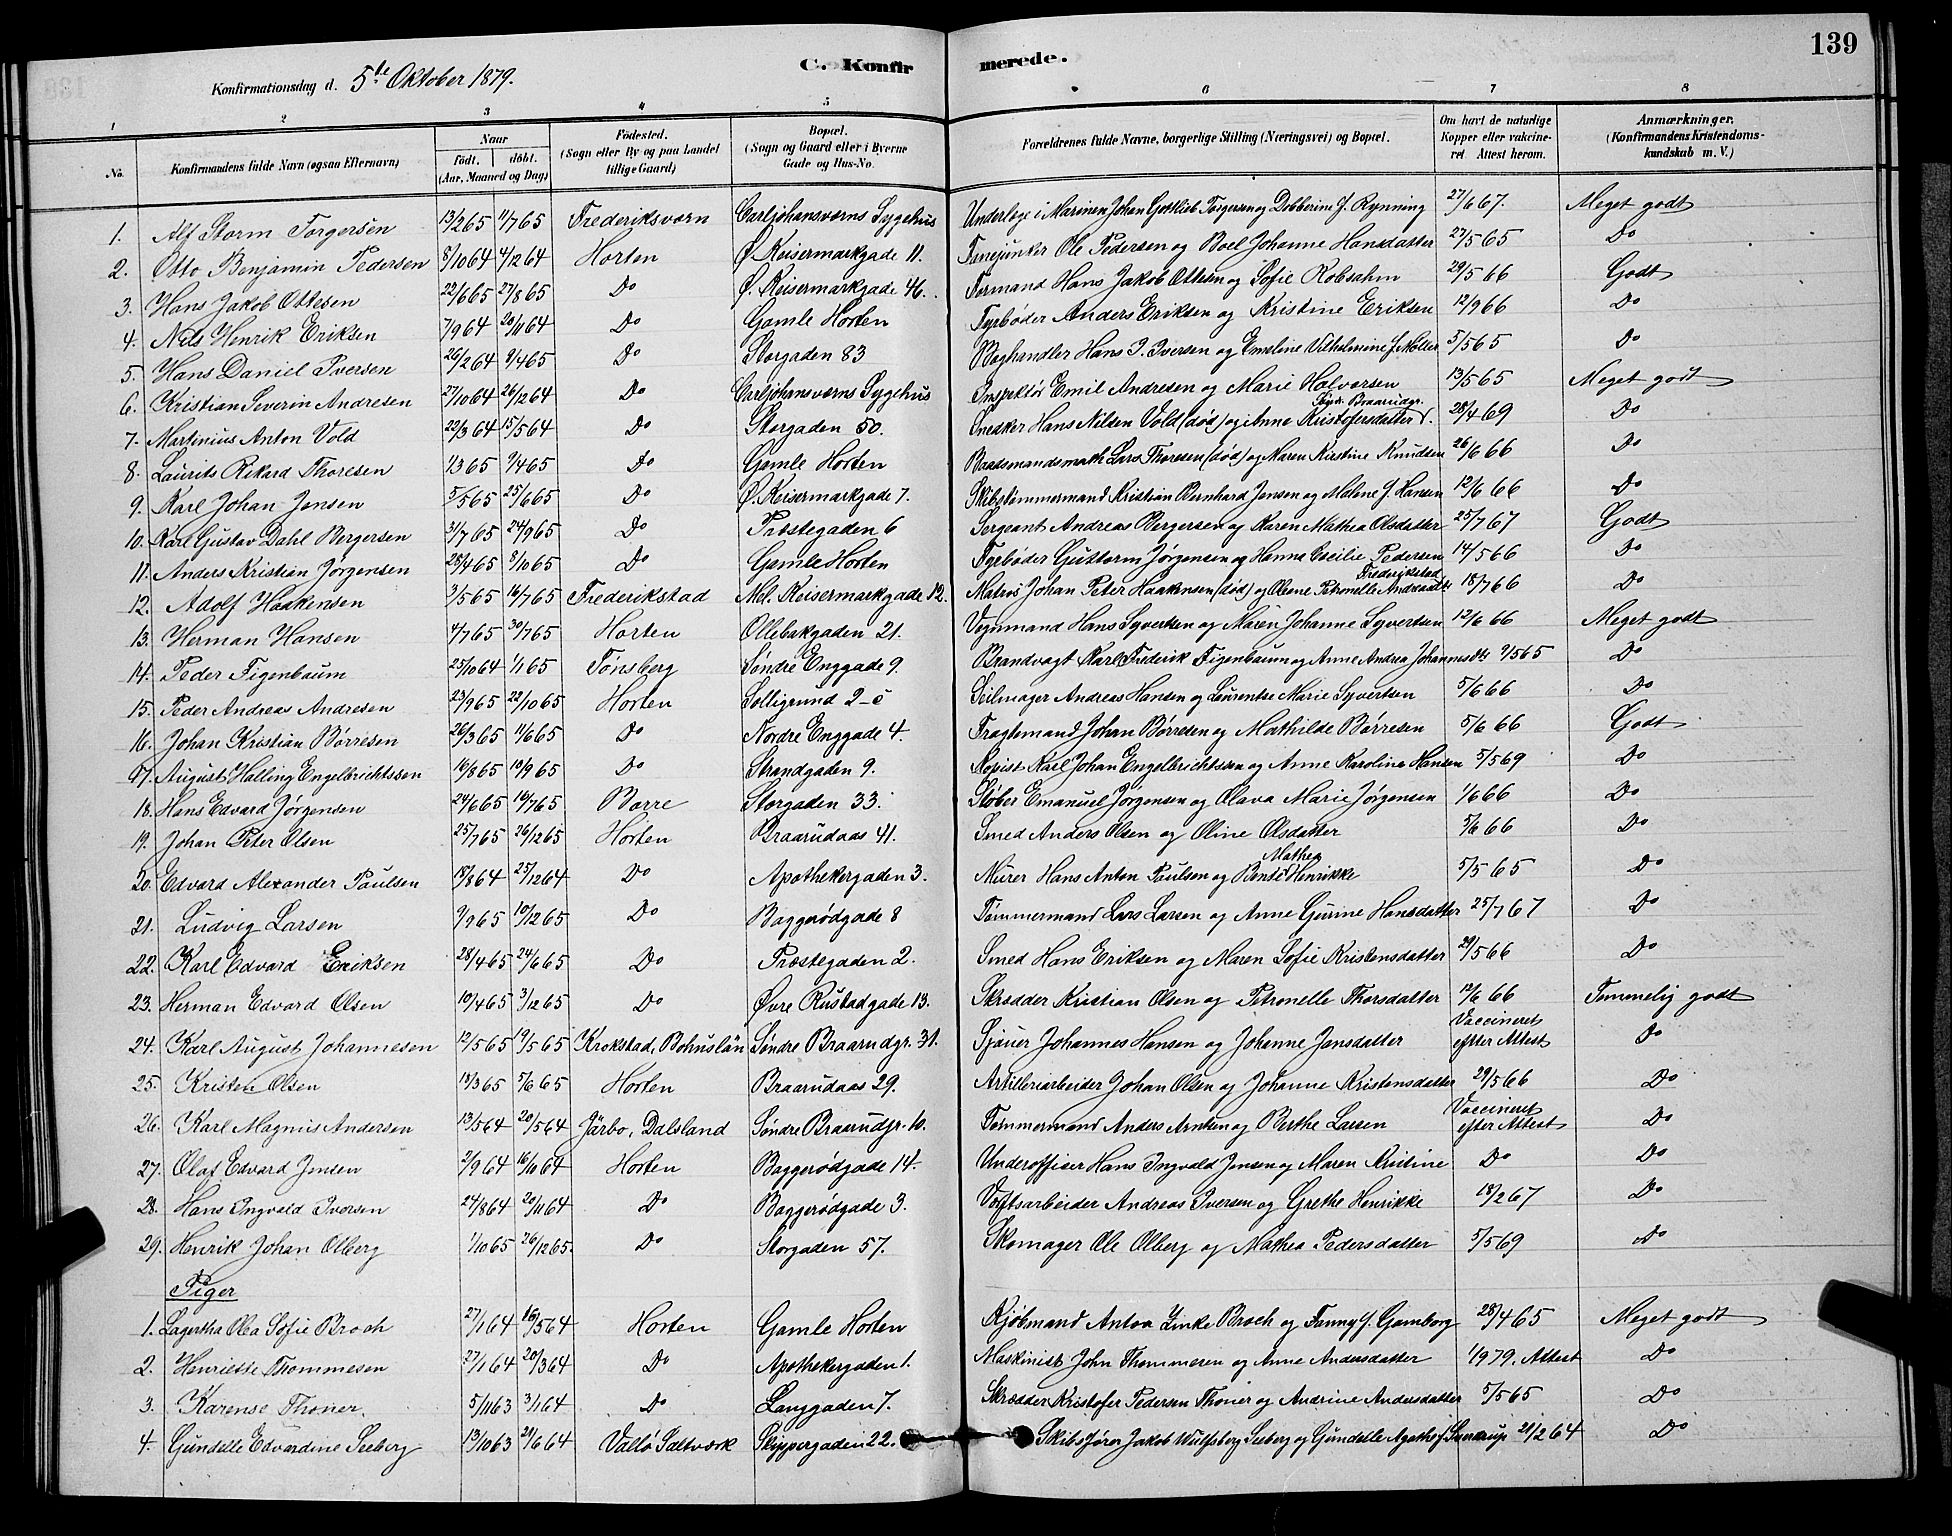 139
C. Konfirmerede.
Konfirmationsdag d. 5te Oktober 1879.
1 2 3 4 5 6 7 8
No. Konfirmandens fulde Navn (ogsaa Efternavn) Naar Født. døbt. (Aar, Maaned og Dag) Fødested. (Sogn eller By og paa Landet tillige Gaard) Bopæl. (Sogn og Gaard eller i Byerne Gade og Hus-No. Forældrenes fulde Navne, borgerlige Stilling (Næringsvei) og Bopæl. Om havt de naturlige Kopper eller vakcineret. Attest herom. Anmærkninger. (Konfirmandens Kristendomskundskab m. V.)
1. Alf Storm Torgersen 13/2 65 11/7 65 Frederiksværn Carljohansværns Sygehus Underlæge i Marinen Johan Gottlieb Torgersen og Dobberine f. Rynning 27/6 67. Meget godt
2. Otto Benjamin Pedersen 8/10 64 4/12 64 Horten Ø. Keisermarkgade 11. Fanejunker Ole Pedersen og Boel Johanne Hansdatter 27/5 65 Do
3. Hans Jakob Ottesen 22/6 65 27/8 65 Do Ø. Keisermarkgade 46. Formand Hans Jakob Ottesen og Sofie Robsahm 29/5 66 Godt
4. Nils Henrik Eriksen 7/9 64 20/11 64 Do Gamle Horten Fyrbøder Anders Eriksen og Kristine Eriksen 12/9 66 Do
5. Hans Daniel Iversen 26/2 64 9/4 65 Do Storgaden 83 Boghandler Hans I. Iversen og Emeline Vilhelmine f. Møller 5/5 65 Do
6. Kristian Severin Andresen 27/10 64 26/12 64 Do Carljohansværns Sygehus Inspektør Emil Andresen og Marie Halvorsen 13/5 65 Meget godt
7. Martinius Anton Vold 22/3 64 15/5 64 Do Storgaden 50. Snedker Hans Nilsen Vold (død) og Anne Kristofersdatter 28/4 69 Do
8. Laurits Rikard Thoresen 1/3 65 9/4 65 Do Gamle Horten Baadsmandsmath Lars Thoresen (død) og Maren Kirstine Knudsen 26/6 66 Do
9. Karl Johan Jensen 5/5 65 25/6 65 Do Ø. Keisermarkgade 7. Skibstømmermand Kristian Bernhard Jensen og Malene f. Hansen 12/6 66 Do
10. Karl Gustav Dahl Bergersen 31/7 65 24/9 65 Do Præstegaden 6 Sergeant Andreas Bergersen og Karen Mathea Olsdatter 25/7 67 Godt
11. Anders Kristian Jørgensen 28/4 65 8/10 65 Do Gamle Horten Fyrbøder Guttorm Jørgensen og Hanna Cecilie Pedersen 14/5 66 Do
12. Adolf Haakensen 3/5 65 16/7 65 Frederikstad Mel. Keisermarkgade 12. Matros Johan Peter Haakensen (død) og Oleane Petronelle Andreasdtr Frederikstad 18/7 66 Do
13. Herman Hansen 4/7 65 30/7 65 Horten Ollebakgaden 21. Vognmand Hans Syvertsen og Maren Johanne Syvertsen 12/6 66 Meget godt
14. Peder Figenbaum 25/10 64 1/1 65 Tønsberg Søndre Enggade 9. Brandvagt Karl Frederik Figenbaum og Anne Andrea Johannesdtr 9/5 65 Do
15. Peder Andreas Andresen 23/9 65 22/10 65 Horten Solligrund 2-c Seilmager Andreas Hansen og Laurentse Marie Syvertsen 5/6 66 Do
16. Johan Kristian Børresen 26/3 65 11/6 65 Do Nordre Enggade 4. Fragtemand Johan Børresen og Mathilde Børresen 5/6 66 Godt
17. August Halling Engelbrichtssen 16/8 65 13/9 65 Do Strandgaden 9. Kopist Karl Johan Engelbrichtssen og Anne Karoline Hansen 5/5 69 Do
18. Hans Edvard Jørgensen 24/6 65 16/7 65 Borre Storgaden 33. Støber Emanuel Jørgensen og Olava Marie Jørgensen 1/6 66 Do
19. Johan Peter Olsen 25/7 65 26/12 65 Horten Braarudaas 41. Smed Anders Olsen og Oline Olsdatter 5/6 66 Do
20. Edvard Alexander Paulsen 18/8 64 25/12 64 Do Apothekergaden 3. Murer Hans Anton Paulsen og Bente Mathea Henrikke 5/5 65 Do
21. Ludvig Larsen 9/9 65 10/12 65 Do Baggerødgade 8 Tømmermand Lars Larsen og Anne Gurine Hansdatter 25/7 67 Do
22. Karl Edvard Eriksen 28/4 65 24/6 65 Do Præstegaden 2. Smed Hans Eriksen og Maren Sofie Kristensdatter 29/5 66 Do
23. Herman Edvard Olsen 10/4 65 3/12 65 Do Øvre Rustadgade 13. Skrædder Kristian Olsen og Petronelle Thorsdatter 12/6 66 Temmelig godt
24. Karl August Johannesen 12/5 65 19/5 65 Krokstad, Bohuslän Søndre Braarudgr. 31. Sjauer Johannes Hansen og Johanne Jansdatter Vaccineret efter Attest Do
25. Kristen Olsen 13/3 65 5/6 65 Horten Braarudaas 29. Artilleriarbeider Johan Olsen og Johanne Kristensdatter 29/5 66 Do
26. Karl Magnus Andersen 13/5 64 20/5 64 Järbo, Dalsland Søndre Braarudgr. 10. Tømmermand Anders Arntsen og Berthe Larsen Vaccineret efter Attest Do
27. Olaf Edvard Jensen 2/9 64 16/10 64 Horten Baggerødgade 14. Underoffiser Hans Ingvald Jensen og Maren Kristine Do Do
28. Hans Ingvald Iversen 24/8 64 20/11 64 Do Baggerødgade 3. Værftsarbeider Andreas Iversen og Grethe Henrikke 18/2 67 Do
29. Henrik Johan Olberg 1/10 65 26/12 65 Do Storgaden 57. Skomager Ole Olberg og Mathea Pedersdatter 5/5 69 Do
Piger
1. Lagertha Olea Sofie Broch 27/1 64 16/5 64 Horten Gamle Horten Kjøbmand Anton Zinke Broch og Fanny f. Gamborg 28/4 65 Meget godt
2. Henriette Thommesen 27/1 64 20/3 64 Do Apothekergaden 1. Maskinist John Thommesen og Anne Andersdatter 1/9 79. Attest Do
3. Karense Thoner. 5/11 63 3/1 64 Do Langgaden 7. Skrædder Kristofer Pedersen Thoner og Andrine Andersdatter 5/5 65 Do
4. Gundelle Edvardine Seeberg 13/10 63 29/6 64 Vallø Saltværk Skippergaden 22. Skibsfører Jakob Wulfsberg Seeberg og Gundelle Agathe f. 20/2 64 Do